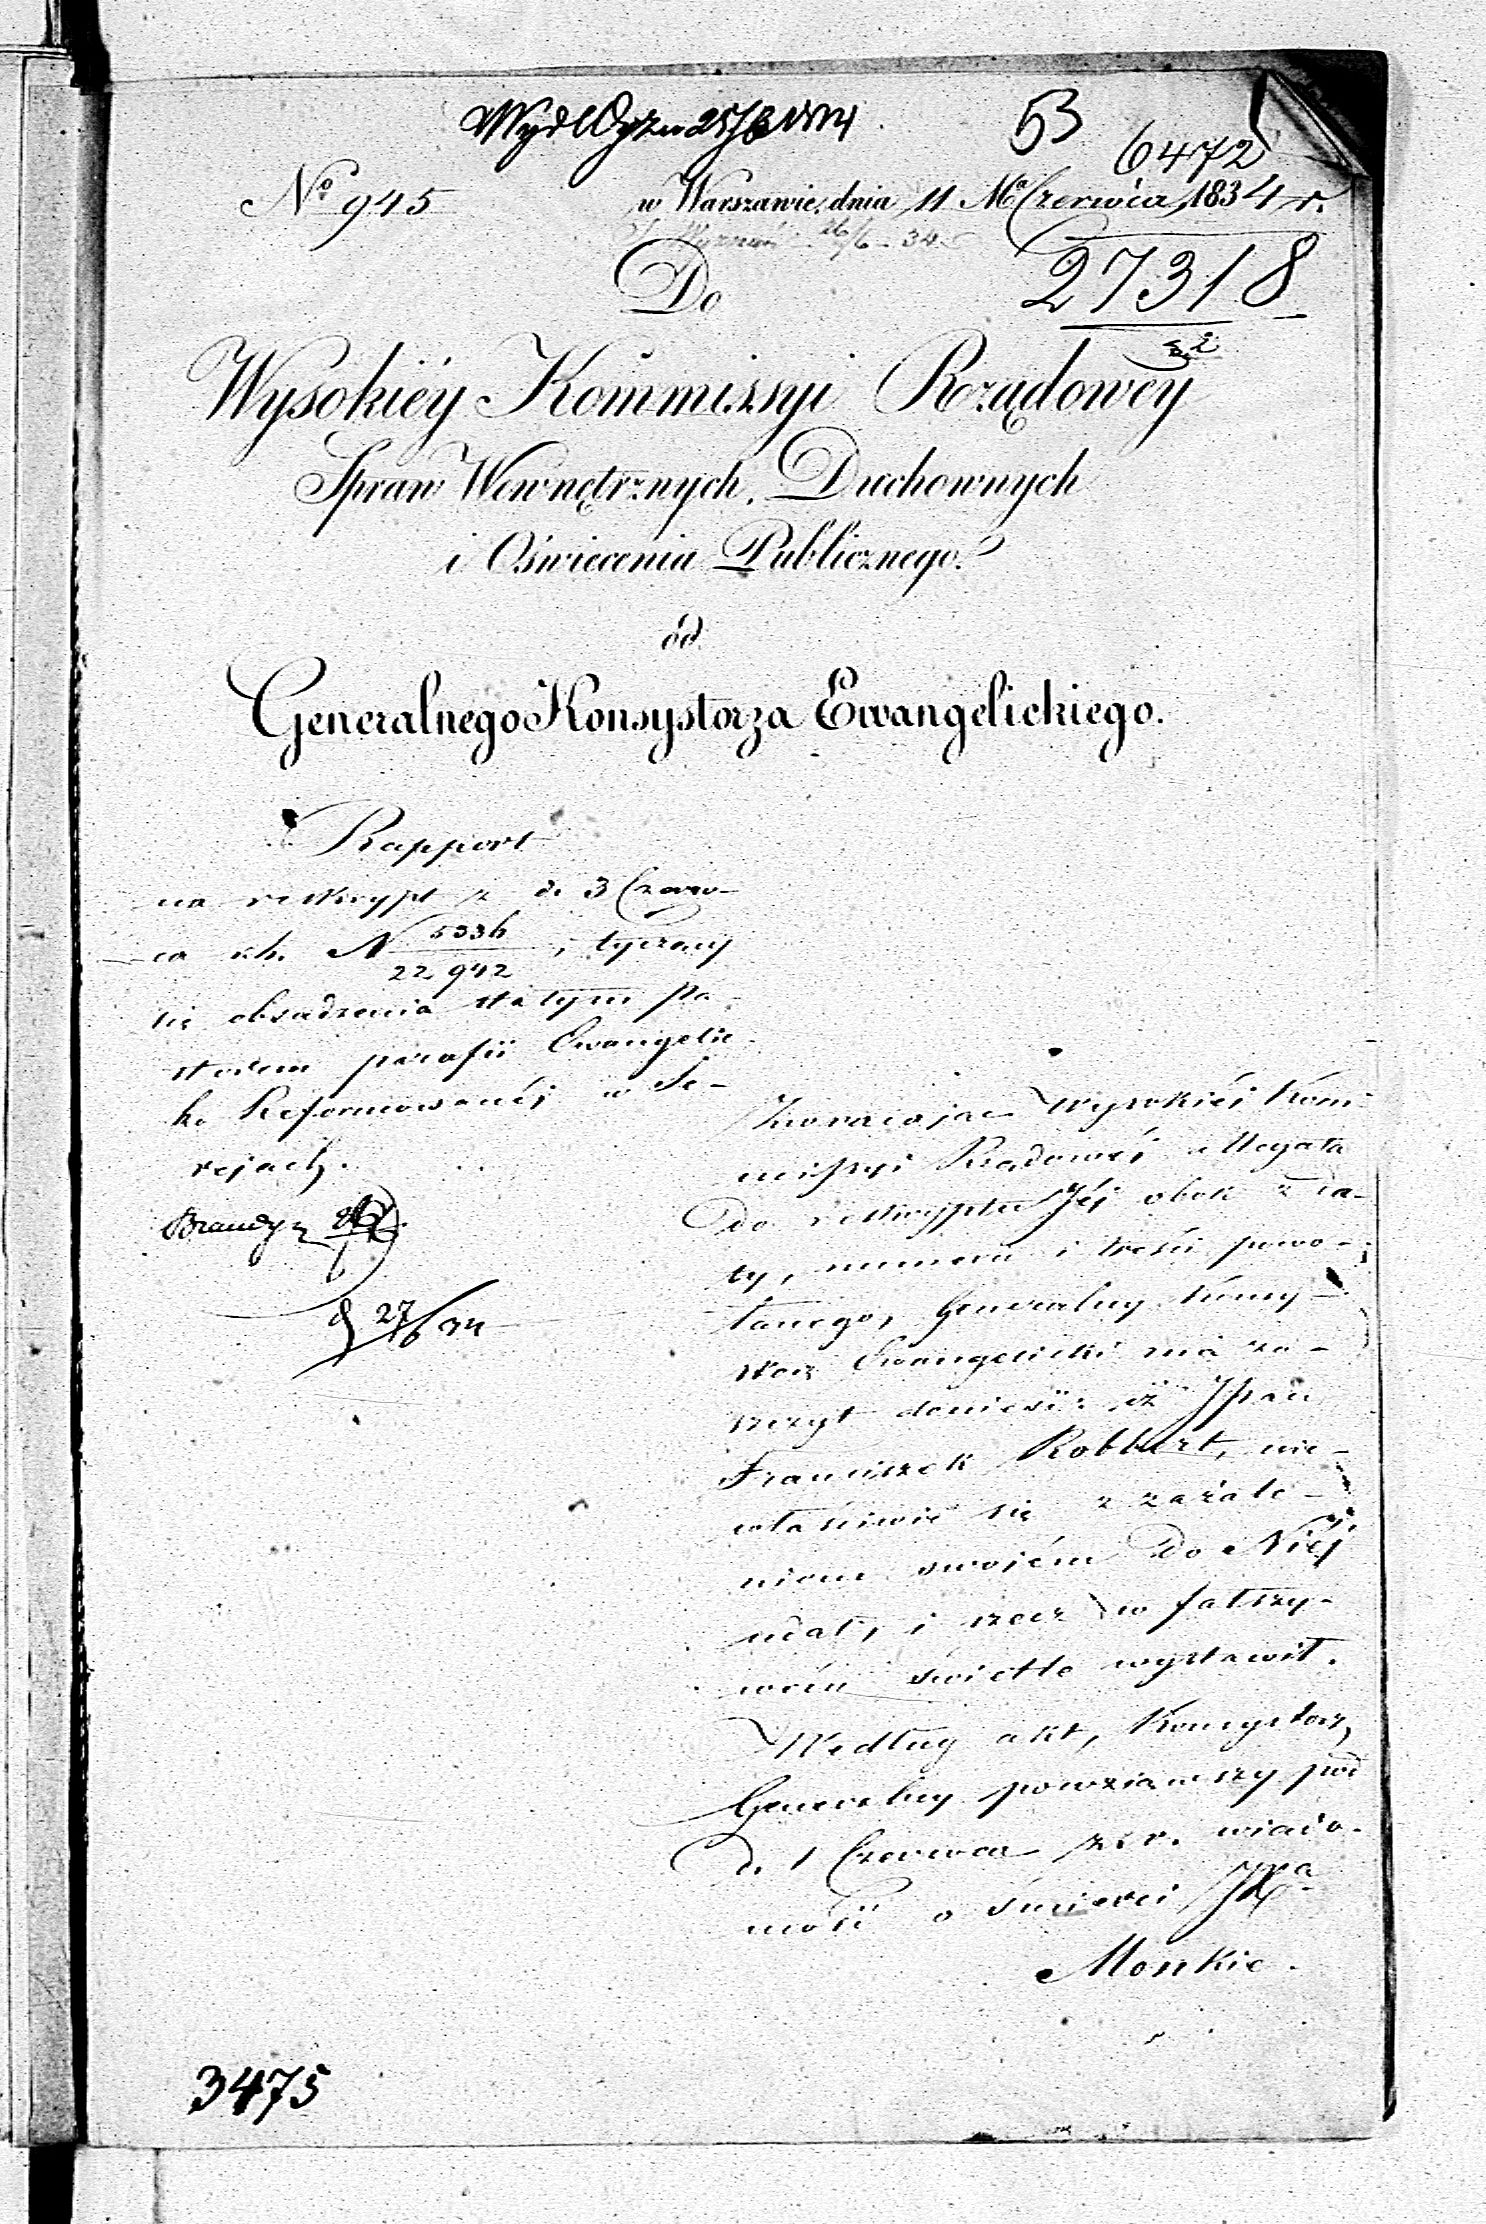 53
6472
No 945
w Warszawie, dnia 11 Mca Czerwca 1834 r.
27318
Do
Wysokiéy Kommissyi Rządowéy
Spraw Wewnętrznych, Duchownych
i Oświecenia Publicznego.
od
Generalnego Konsystorza Ewangelickiego.
Rapport
na reskrypt z d. 3 Czerw-
ca r.b. N 5336/22942, tyczący
się obsadzenia stałym pa-
storem parafii Ewangelic-
ko Reformowanéj w Se-
rejach.
27/6 34
Zwracając Wysokiéj Kom-
missyi Rządowéj allegata
do reskryptu Jéj obok z da-
ty, numeru i treści powo-
łanego, Generalny Konsy-
storz Ewangelicki ma za-
szczyt donieść: iż JPan
Franciszek Robbert, nie-
właściwie się z zażale-
niem swojém do Niéj
udał, i rzecz w fałszy-
wém świetle wystawił.
Według akt, Konsystorz
Generalny powziąwszy pod
d. 1 Czerwca z.r. wiado-
mość o śmierci JXa
Monkie.
3475